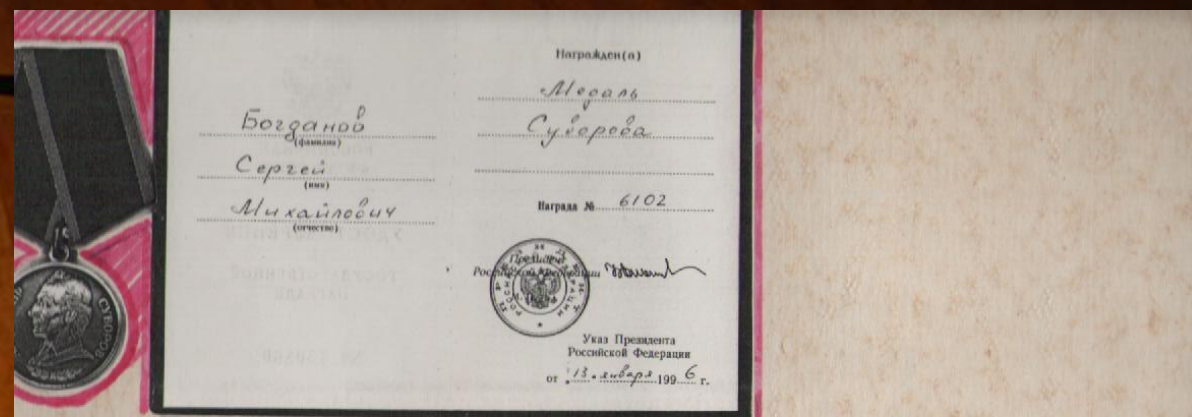 Богданов
(фамилия)
Сергей
(имя)
Михайлович
(отчество)
Награжден(а)
Медаль
Суворова
Награда № 6102
Президент
Российской Федерации
Указ Президента
Российской Федерации
от "13" января 1996 г.
СУВОРОВ